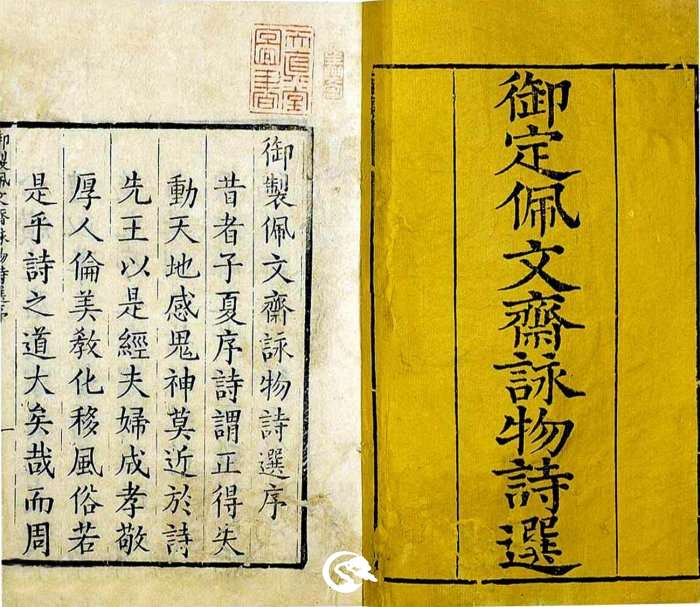 御定佩文齋詠物詩選
御製佩文齋詠物詩選序
昔者子夏序詩謂正得失
動天地感鬼神莫近於詩
先王以是經夫婦成孝敬
厚人倫美敎化移風俗若
是乎詩之道大矣哉而周
御製佩文齋詠物詩選序
一